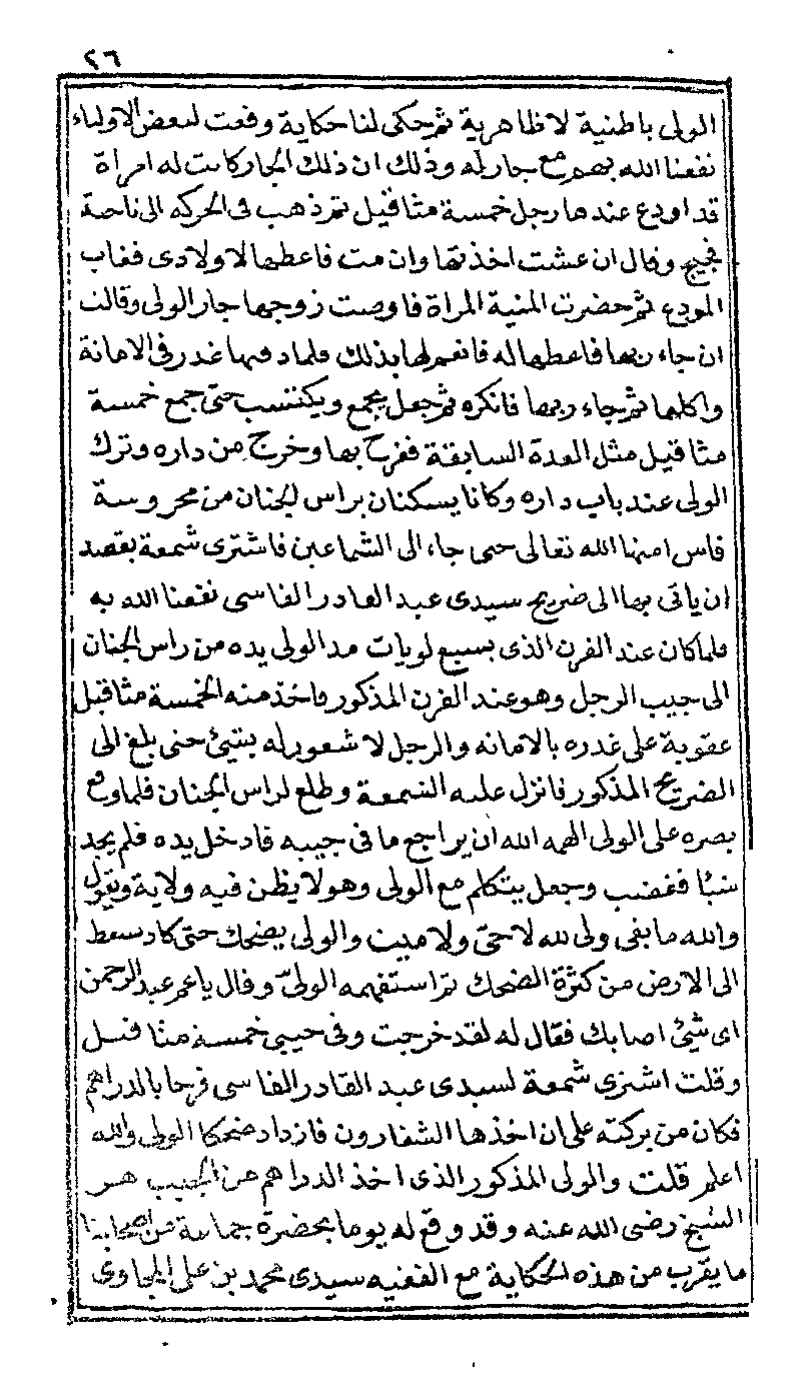 ٢٦
الولى باطنية لا ظاهرية ثم حكى لنا حكاية وقعت لبعض الاولياء
نفعنا الله بهم مع جار له وذلك ان ذلك الجار كانت له امراة
قد اودع عندها رجل خمسة مثاقيل ثم ذهب فى الحركه الى ناحية
فجيج وقال ان عشت اخذتها وان مت فاعطها لاولادى فغاب
المودع ثم حضرت المنية المراة فاوصت زوجها جار الولى وقالت
ان جاء ربها فاعطها له فانعم لها بذلك فلما دفنها غدر فى الامانة
واكلها ثم جاء ربها فانكره ثم جعل يجمع ويكتسب حتى جمع خمسة
مثاقيل مثل العدة السابقة ففرح بها وخرج من داره وترك
الولى عند باب داره وكانا يسكنان براس الجنان من محروسة
فاس امنها الله تعالى حتى جاء الى الشماعين فاشترى شمعة بقصد
ان ياتى بها الى ضريح سيدى عبد القادر الفاسى نفعنا الله به
فلما كان عند الفرن الذى بسبع لويات مد الولى يده من راس الجنان
الى جيب الرجل وهو عند الفرن المذكور فاخذ منه الخمسة مثاقيل
عقوبة على غدره بالامانه والرجل لا شعور له بشيئ حتى بلغ الى
الضريح المذكور فانزل عليه الشمعة وطلع لراس الجنان فلما وقع
بصره على الولى الهمه الله ان يراجع ما فى جيبه فادخل يده فلم يجد
شيئا فغضب وجعل يتكلم مع الولى وهو لا يظن فيه ولاية ويقول
والله ما بقى ولى لله لا حىّ ولا ميت والولى يضحك حتى كاد يسقط
الى الارض من كثرة الضحك ثم استفهمه الولىّ وقال يا عم عبد الرحمن
اى شيئ اصابك فقال له لقد خرجت وفى جيبى خمسة مثاقيل
وقلت اشترى شمعة لسيدى عبد القادر الفاسى فرحا بالدراهم
فكان من بركته على ان اخذها الشفارون فازداد ضحكا الولى والله
اعلم قلت والولى المذكور الذى اخذ الدراهم من الجيب هو
الشيخ رضى الله عنه وقد وقع له يوما بحضرة جماعة من اصحابنا
ما يقرب من هذه الحكاية مع الفقيه سيدى محمد بن على المجاوى